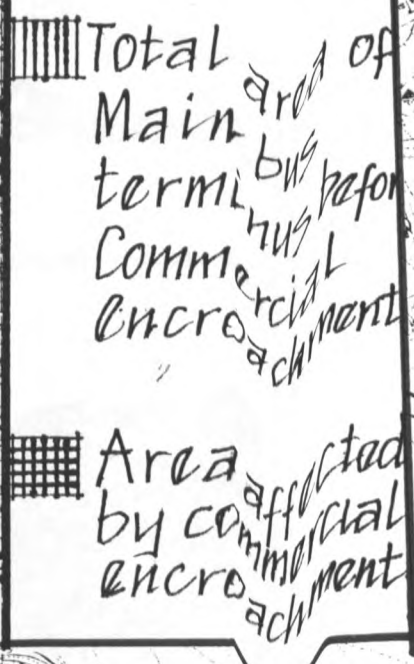 Total area of
Main bus
terminus befor
Commercial
encroachment
Area affected
by commercial
encroachment